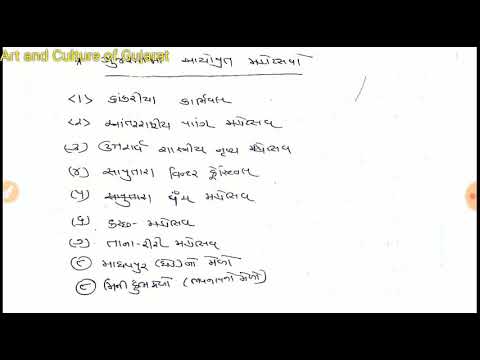 Art and Culture of Gujarat
* ગુજરાતમાં આયોજીત મહોત્સવો
<૧> કાંકરીયા કાર્નિવલ
<૨> આંતરરાષ્ટ્રીય પતંગ મહોત્સવ
<૩> ઉત્તરાર્ધ શાસ્ત્રીય નૃત્ય મહોત્સવ
(૪) સાપુતારા વિન્ટર ફેસ્ટિવલ
(૫) સાપુતારા વર્ષા મહોત્સવ
(૬) કચ્છ- મહોત્સવ
(૭) તાના-રીરી મહોત્સવ
(૮) માધવપુર (ઘેડ)નો મેળો
(૯) મિની કુંભમેળો (ભવનાથનો મેળો)